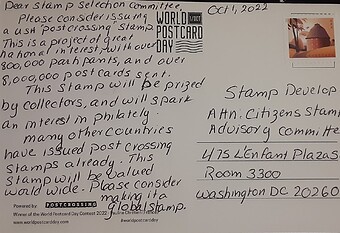 Dear Stamp Selection Committee,
Please consider issuing
a USA "postcrossing" stamp.
This is a project of great
national interest, with over
800,000 participants, and over
8,000,000 postcards sent.
This stamp will be prized
by collectors, and will spark
an interest in philately.
many other Countries
have issued post crossing
Stamps already. This
Stamp will be valued
world wide. Please consider
making it a
global stamp.
Powered by: POSTCROSSING
Winner of the World Postcard Day Contest 2022
www.worldpostcardday.com #worldpostcardday
WORLD
POSTCARD
DAY
1/OCT
Oct 1, 2022
Stamp Develop
Attn. Citizens Stam
Advisory Committe
475 L'Enfant Plaza S
Room 3300
Washington DC 20260